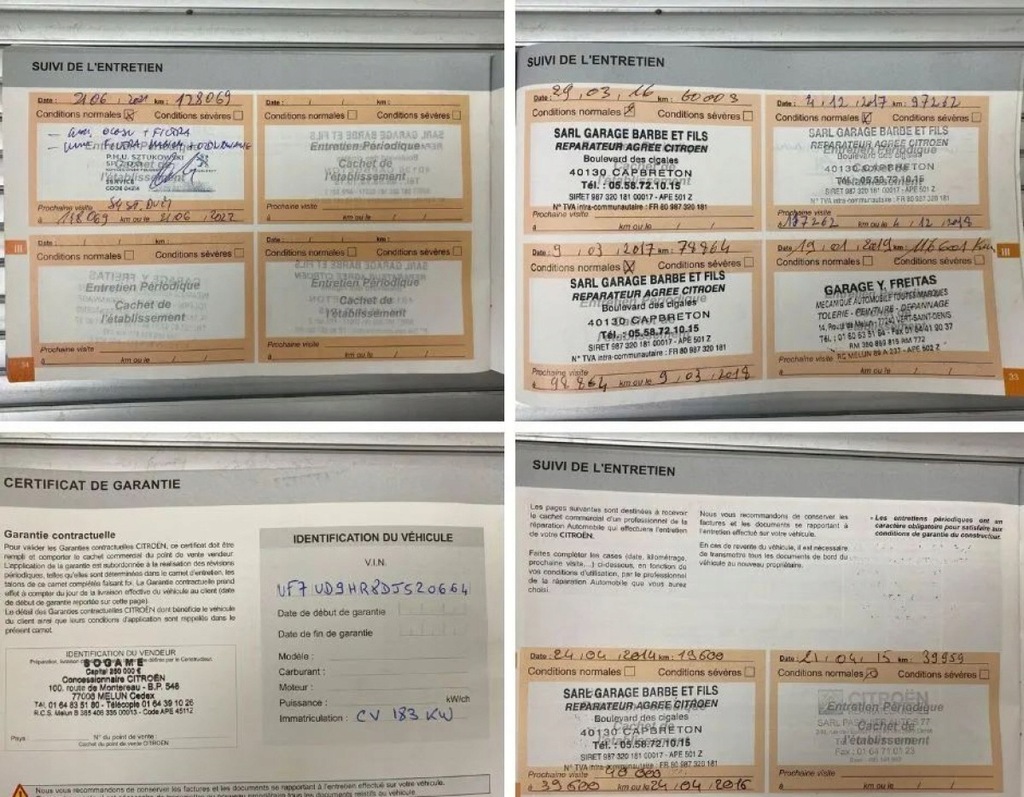 SUIVI DE L'ENTRETIEN
Date : 21 06 2021 km : 128069
Conditions normales Conditions sévères
Entretien Périodique
P.H.U. SZTUKOWSKI
Cachet de
l'établissement
Prochaine visite
à 148069 km ou le 21 06 , 2022
Date : / / km :
Conditions normales Conditions sévères
Entretien Périodique
Cachet de
l'établissement
Prochaine visite
à km ou le / /
Conditions normales Conditions sévères
Entretien Périodique
Cachet de
l'établissement
Prochaine visite
à km ou le / /
Conditions normales Conditions sévères
Entretien Périodique
Cachet de
l'établissement
Prochaine visite
à km ou le / /
III
34
SUIVI DE L'ENTRETIEN
Date : 29 , 03 , 16 km : 60003
Conditions normales Conditions sévères
SARL GARAGE BARBE ET FILS
REPARATEUR AGREE CITROEN
Boulevard des cigales
40130 CAPBRETON
Tél. : 05.58.72.10.15
SIRET 987 320 181 00017 - APE 501 Z
N° TVA intra-communautaire : FR 80 987 320 181
Prochaine visite
à km ou le / /
Date : 4 , 12 , 2017 km : 97262
Conditions normales Conditions sévères
SARL GARAGE BARBE ET FILS
REPARATEUR AGREE CITROEN
Boulevard des cigales
40130 CAPBRETON
Tél. : 05.58.72.10.15
SIRET 987 320 181 00017 - APE 501 Z
N° TVA intra-communautaire : FR 80 987 320 181
Prochaine visite
km ou le 4 / 12 / 2018
Date : 9 , 03 , 2017 km : 78864
Conditions normales Conditions sévères
SARL GARAGE BARBE ET FILS
REPARATEUR AGREE CITROEN
Boulevard des cigales
40130 CAPBRETON
Tél. : 05.58.72.10.15
SIRET 987 320 181 00017 - APE 501 Z
N° TVA intra-communautaire : FR 80 987 320 181
Prochaine visite
à 98864 km ou le 9 , 03 , 2018
Date : 19 , 01 , 2019 km : 116601 km
Conditions normales Conditions sévères
GARAGE Y. FREITAS
MECANIQUE AUTOMOBILE TOUTES MARQUES
TOLERIE - PEINTURE - DEPANNAGE
Prochaine visite
à km ou le / /
III
33
CERTIFICAT DE GARANTIE
Garantie contractuelle
Pour valider les Garanties contractuelles CITROËN, ce certificat doit être
rempli et comporter le cachet commercial du point de vente vendeur.
L'application de la garantie est subordonnée à la réalisation des révisions
périodiques, telles qu'elles sont déterminées dans le carnet d'entretien, les
talons de ce carnet complétés faisant foi. La Garantie contractuelle prend
effet à compter du jour de la livraison effective du véhicule au client (date
de début de garantie reportée sur cette page).
Le détail des Garanties contractuelles CITROËN dont bénéficie le véhicule
du client ainsi que leurs conditions d'application sont rappelés dans le
présent carnet.
IDENTIFICATION DU VENDEUR
SOGAME
Capital 250 000 €
Concessionnaire CITROËN
100, route de Montereau - B.P. 546
77006 MELUN Cedex
Tél. 01 64 83 51 80 - Télécopie 01 64 39 10 26
Pays : N° du point de vente :
Cachet du point de vente CITROËN
IDENTIFICATION DU VÉHICULE
V.I.N.
VF7 UD9HR8DJ520664
Date de début de garantie
Date de fin de garantie
Modèle :
Carburant :
Moteur :
Puissance : kW/ch
Immatriculation : CV 183 KW
Nous vous recommandons de conserver les factures et les documents se rapportant à l'entretien effectué sur votre véhicule.
SUIVI DE L'ENTRETIEN
Les pages suivantes sont destinées à recevoir
le cachet commercial d'un professionnel de la
réparation Automobile qui effectuera l'entretien
de votre CITROËN.
Faites compléter les cases (date, kilométrage,
prochaine visite,...) ci-dessous, en fonction de
vos conditions d'utilisation, par le professionnel
de la réparation Automobile que vous aurez
choisi.
Nous vous recommandons de conserver les
factures et les documents se rapportant à
l'entretien effectué sur votre véhicule.
En cas de revente du véhicule, il est nécessaire
de transmettre tous les documents de bord du
véhicule au nouveau propriétaire.
• Les entretiens périodiques ont un
caractère obligatoire pour satisfaire aux
conditions de garantie du constructeur.
Date : 24 , 04 , 2014 km : 19600
Conditions normales Conditions sévères
SARL GARAGE BARBE ET FILS
REPARATEUR AGREE CITROEN
Boulevard des cigales
40130 CAPBRETON
Tél. : 05.58.72.10.15
SIRET 987 320 181 00017 - APE 501 Z
N° TVA intra-communautaire : FR 80 987 320 181
Prochaine visite
à 39600 km ou le 24 , 04 , 2016
Date : 21 , 04 , 15 km : 39959
Conditions normales Conditions sévères
CITROËN
Entretien Périodique
Cachet de
l'établissement
Prochaine visite
à km ou le / /